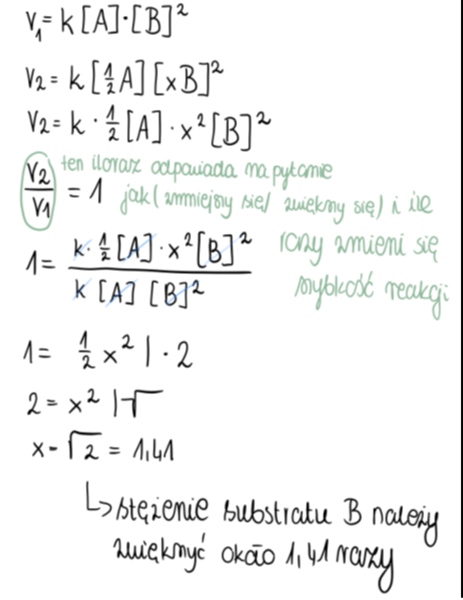 V₁= k[A]·[B]²
V₂= k[½A][xB]²
V₂= k·½[A]·x²[B]²
ten iloraz odpowiada na pytanie
V₂/V₁ = 1 jak (zmniejszy się/ zwiększy się) i ile
razy zmieni się
1= k·½[A]·x²[B]² / k[A][B]²
szybkość reakcji
1= ½x² |·2
2= x² |√
x-√2 = 1,41
↳ stężenie substratu B należy
zwiększyć około 1,41 razy